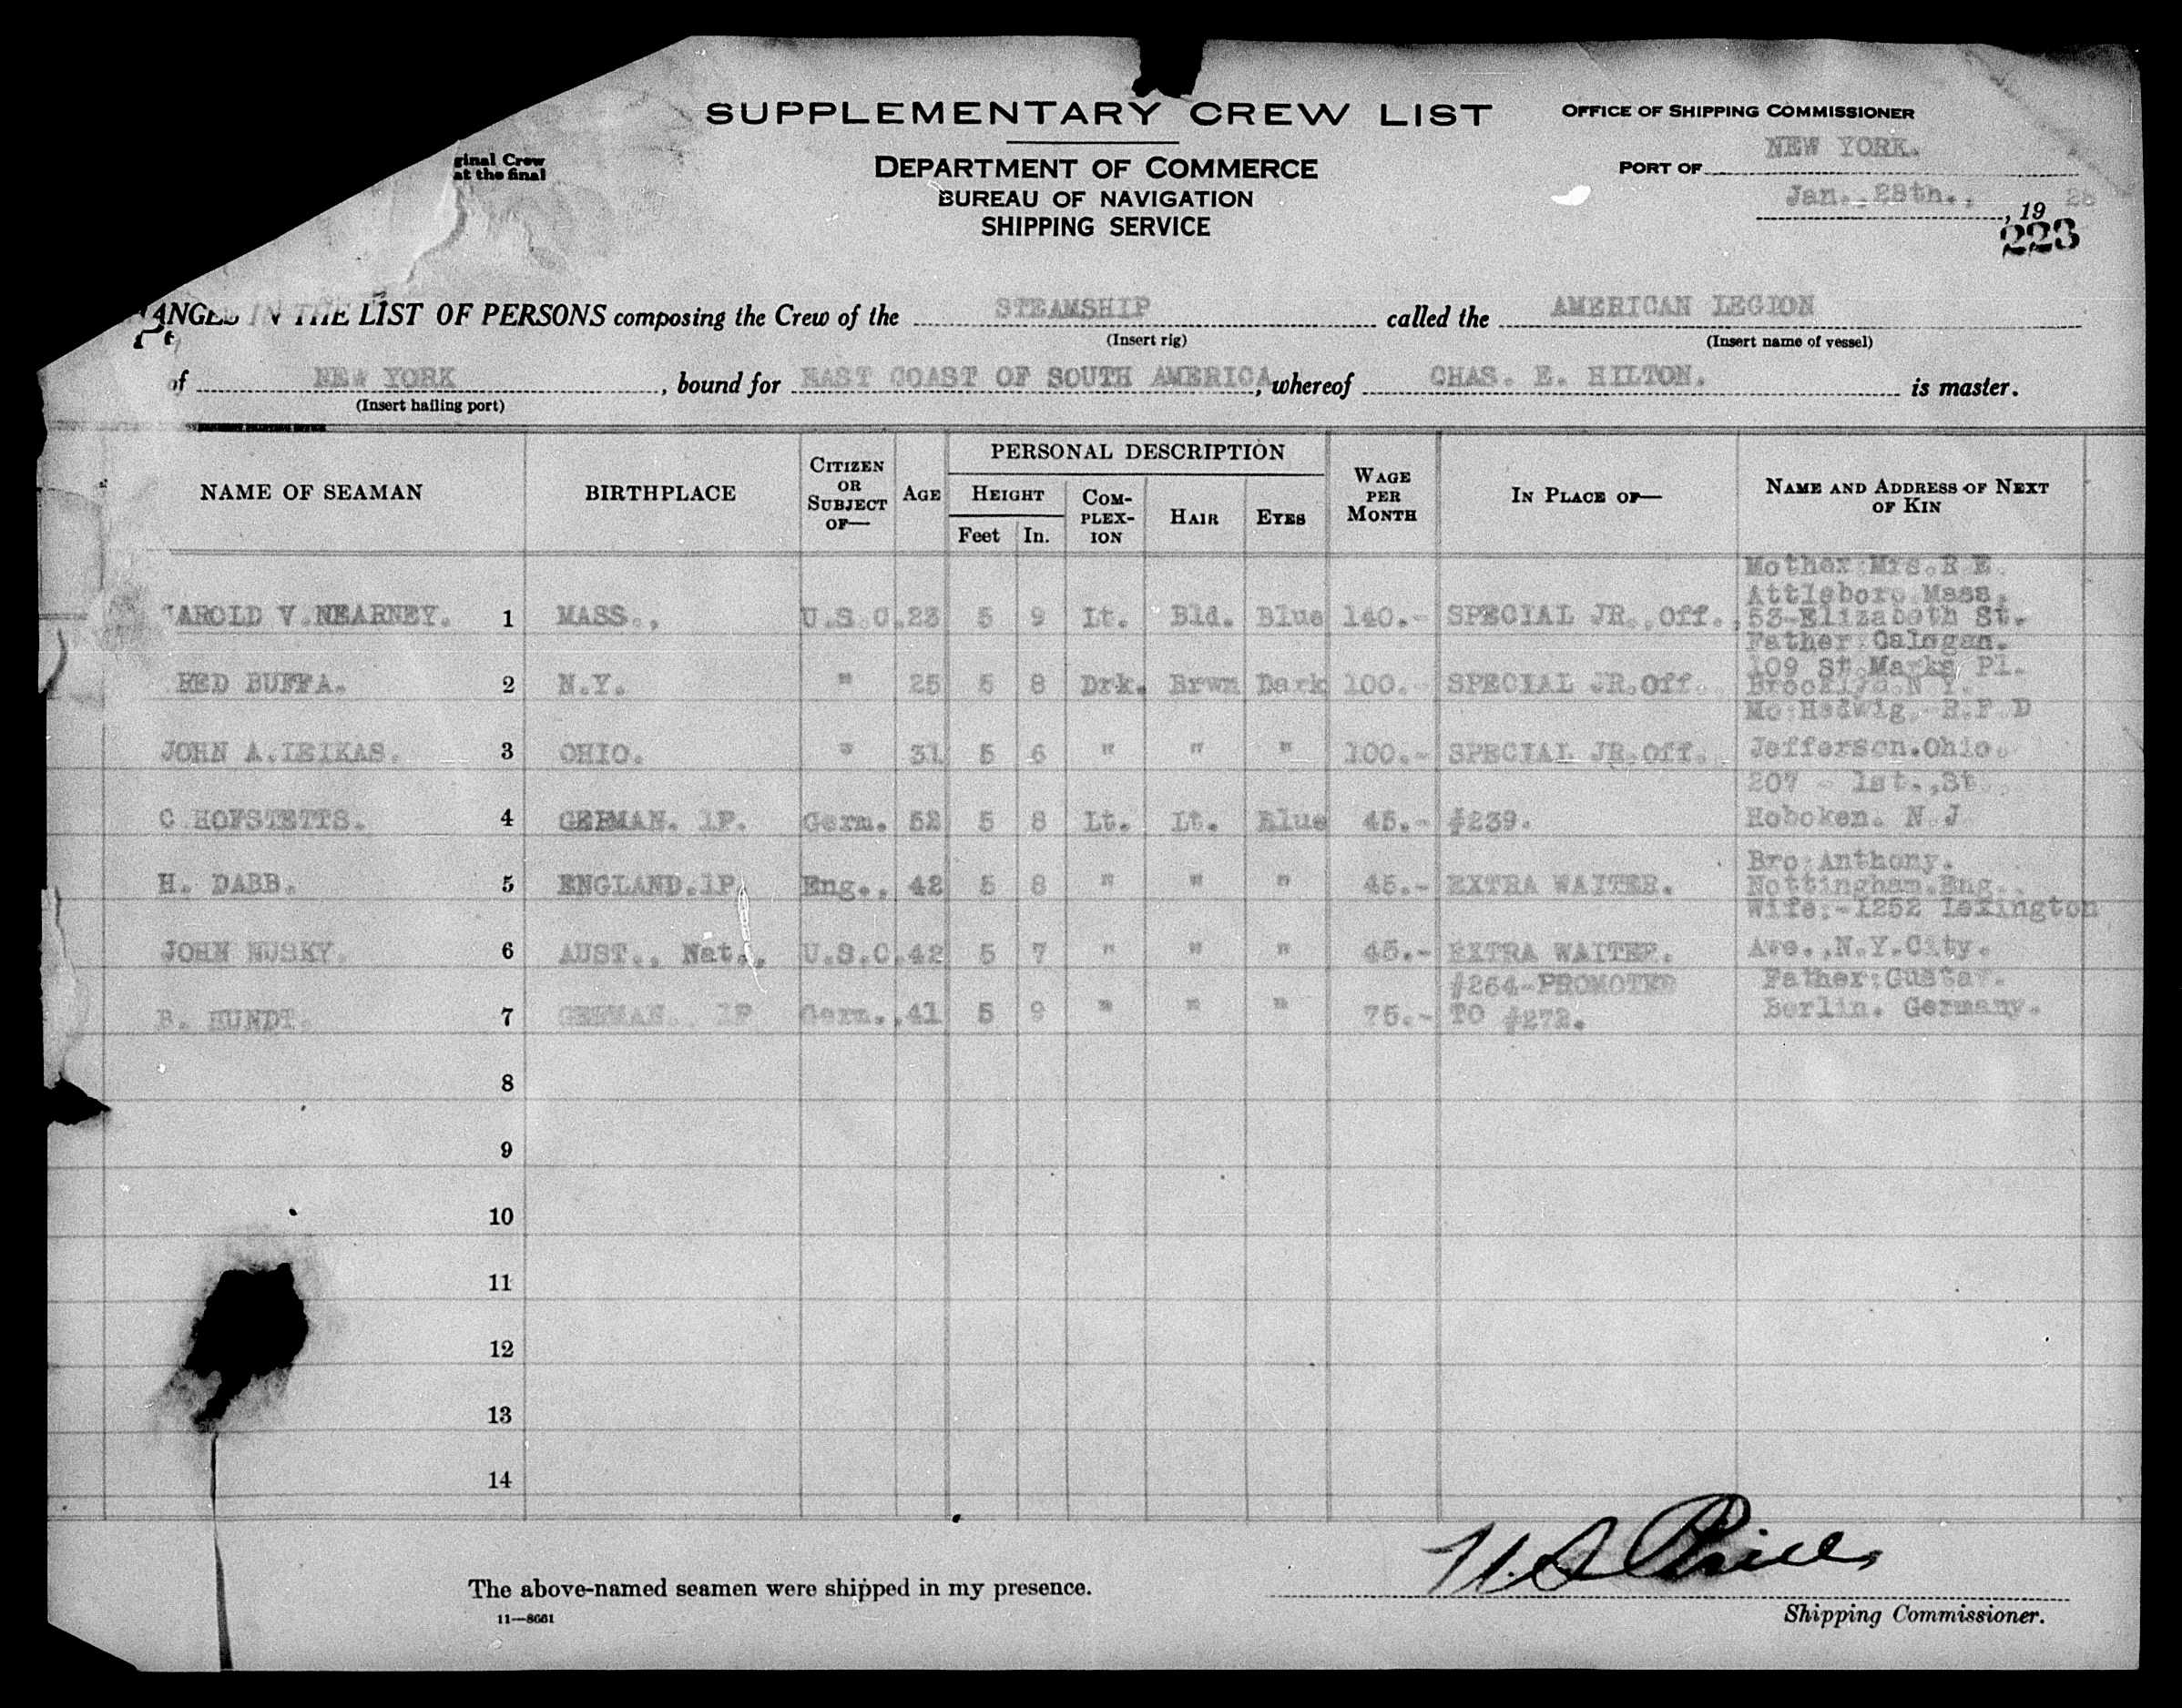 SUPPLEMENTARY CREW LIST
OFFICE OF SHIPPING COMMISSIONER
ginal Crew
at the final
DEPARTMENT OF COMMERCE
BUREAU OF NAVIGATION
SHIPPING SERVICE
PORT OF NEW YORK.
Jan. 28th., , 19 28
223
ANGES IN THE LIST OF PERSONS composing the Crew of the STEAMSHIP called the AMERICAN LEGION
(Insert rig) (Insert name of vessel)
of NEW YORK , bound for EAST COAST OF SOUTH AMERICA, whereof CHAS. E. HILTON. is master.
(Insert hailing port)
NAME OF SEAMAN BIRTHPLACE CITIZEN OR SUBJECT OF— AGE PERSONAL DESCRIPTION WAGE PER MONTH IN PLACE OF— NAME AND ADDRESS OF NEXT OF KIN
HEIGHT COMPLEXION HAIR EYES
Feet In.
Mother Mrs. R E.
Attleboro Mass.
AROLD V. NEARNEY. 1 MASS., U.S.C. 23 5 9 Lt. Bld. Blue 140.- SPECIAL JR. Off., 53-Elizabeth St.
Father: Calogan.
109 St. Marks Pl.
RED BUFFA. 2 N.Y. " 25 5 8 Drk. Brwn Dark 100.- SPECIAL JR. Off. Brooklyn N Y.
Mo: Hedwig.-R.F.D
JOHN A. IEIKAS. 3 OHIO. " 31 5 6 " " " 100.- SPECIAL JR. Off. Jefferson. Ohio.
207 - 1st., St.
C HOFSTETTS. 4 GERMAN. 1P. Germ. 52 5 8 Lt. Lt. Blue 45.- #239. Hoboken. N.J
Bro: Anthony.
H. DABB. 5 ENGLAND. 1P Eng., 42 5 8 " " " 45.- EXTRA WAITER. Nottingham. Eng.
Wife:-1252 Lexington
JOHN NUSKY. 6 AUST., Nat., U.S.C. 42 5 7 " " " 45.- EXTRA WAITER. Ave., N.Y. City.
#264-PROMOTED Father: Gustav.
B. HUNDT. 7 GERMAN. 1P Germ., 41 5 9 " " " 75.- TO #272. Berlin. Germany.
8
9
10
11
12
13
14
The above-named seamen were shipped in my presence.
11—8661
Shipping Commissioner.